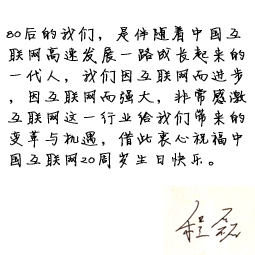 80后的我们，是伴随着中国互
联网高速发展一路成长起来的
一代人，我们因互联网而进步
，因互联网而强大，非常感激
互联网这一行业给我们带来的
变革与机遇，借此衷心祝福中
国互联网20周岁生日快乐。
程磊